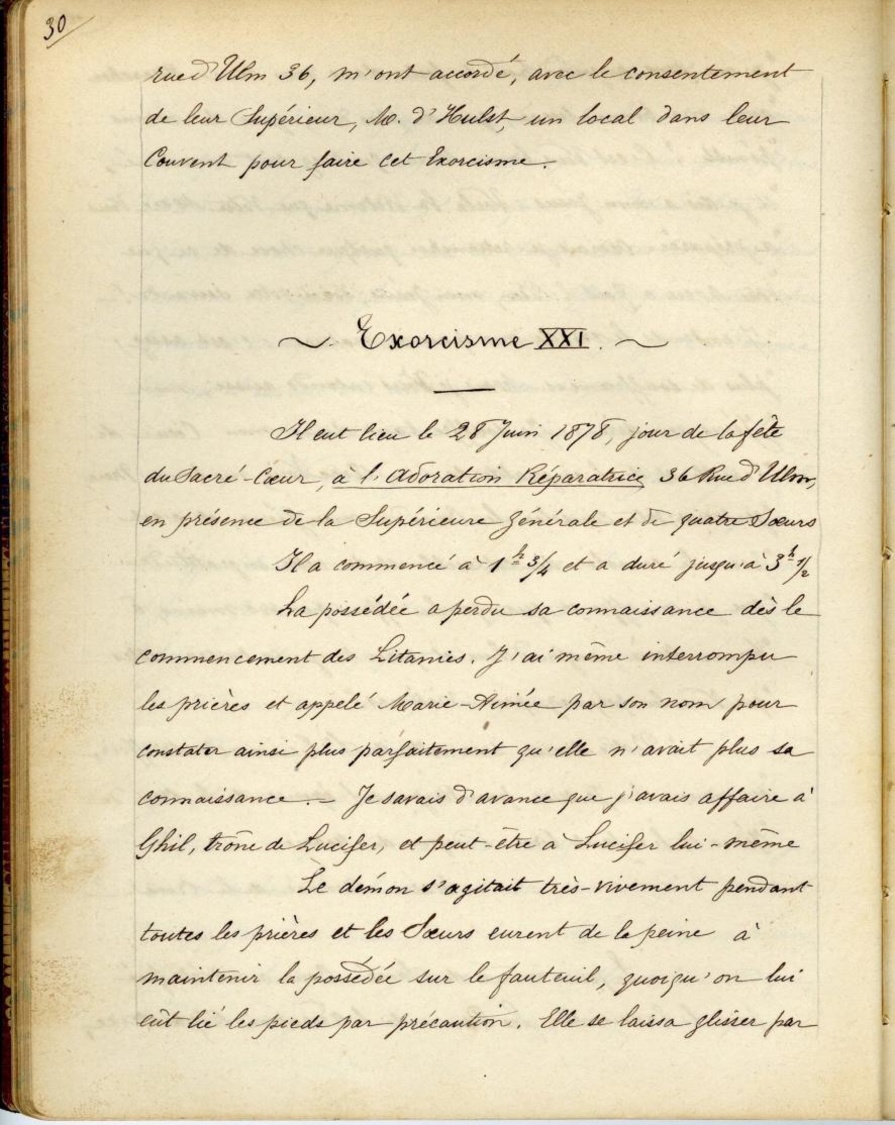 30
rue d'Ulm 36, m'ont accordé, avec le consentement
de leur Supérieur, M. d'Hulst, un local dans leur
Couvent pour faire cet Exorcisme.
~ Exorcisme XXI. ~
Il eut lieu le 28 Juin 1878, jour de la fête
du Sacré-Cœur, à l'Adoration Réparatrice, 36 Rue d'Ulm,
en présence de la Supérieure générale et de quatre Sœurs
Il a commencé à 1h 3/4 et a duré jusqu'à 3h 1/2
La possédée a perdu sa connaissance dès le
commencement des Litanies. J'ai même interrompu
les prières et appelé Marie-Aimée par son nom pour
constater ainsi plus parfaitement qu'elle n'avait plus sa
connaissance. — Je savais d'avance que j'avais affaire à
Ghil, trône de Lucifer, et peut-être à Lucifer lui-même
Le démon s'agitait très-vivement pendant
toutes les prières et les Sœurs eurent de la peine à
maintenir la possédée sur le fauteuil, quoiqu'on lui
eût lié les pieds par précaution. Elle se laissa glisser par